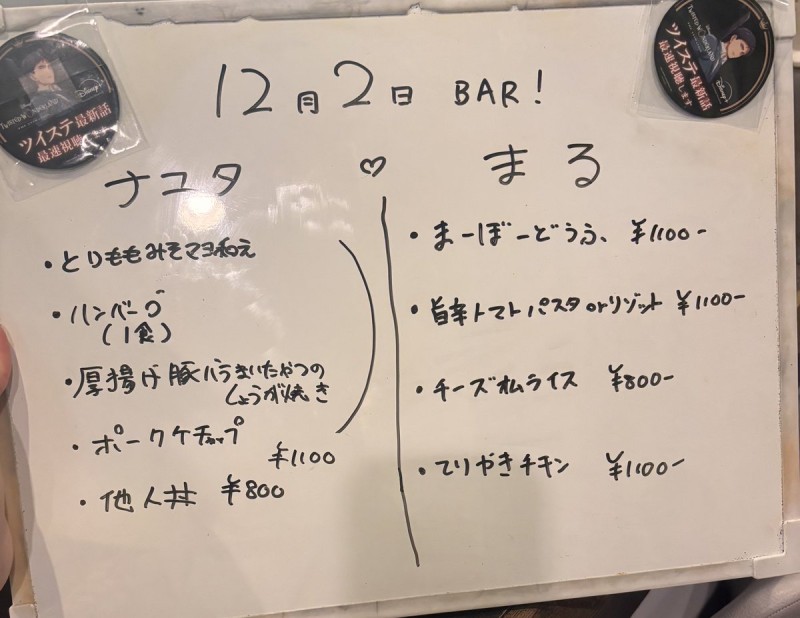 12月2日 BAR!
ツイステ最新話
最速視聴
Disney+
ツイステ最新話
最速視聴します
Disney+
ナユタ
♡
まる
・とりももみそマヨ和え
・ハンバーグ
(1食)
・厚揚げ豚バラまいたやつの
しょうが焼き
・ポークケチャップ
¥1100
・他人丼 ¥800
・まーぼーどうふ、 ¥1100-
・旨辛トマトパスタorリゾット ¥1100-
・チーズオムライス ¥800-
・てりやきチキン ¥1100-